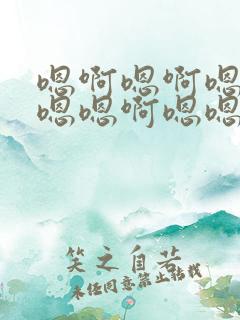 嗯啊嗯啊嗯
嗯嗯啊嗯嗯
笑之自若
未经同意禁止转载